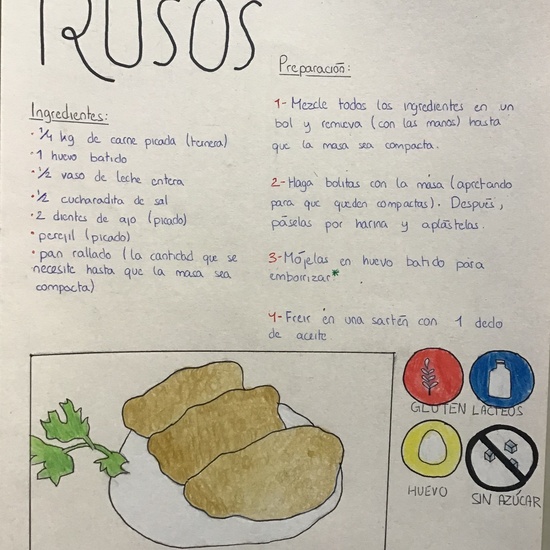 RUSOS
Ingredientes:
· 1/4 kg de carne picada (ternera)
· 1 huevo batido
· 1/2 vaso de leche entera
· 1/2 cucharadita de sal
· 2 dientes de ajo (picado)
· perejil (picado)
· pan rallado (la cantidad que se
necesite hasta que la masa sea
compacta)
Preparación:
1- Mezcle todos los ingredientes en un
bol y remueva (con las manos) hasta
que la masa sea compacta.
2- Haga bolitas con la masa (apretando
para que queden compactas). Después,
páselas por harina y aplástelas.
3- Mójelas en huevo batido para
emborrizar*
4- Freír en una sartén con 1 dedo
de aceite
GLUTEN LÁCTEOS
HUEVO SIN AZÚCAR